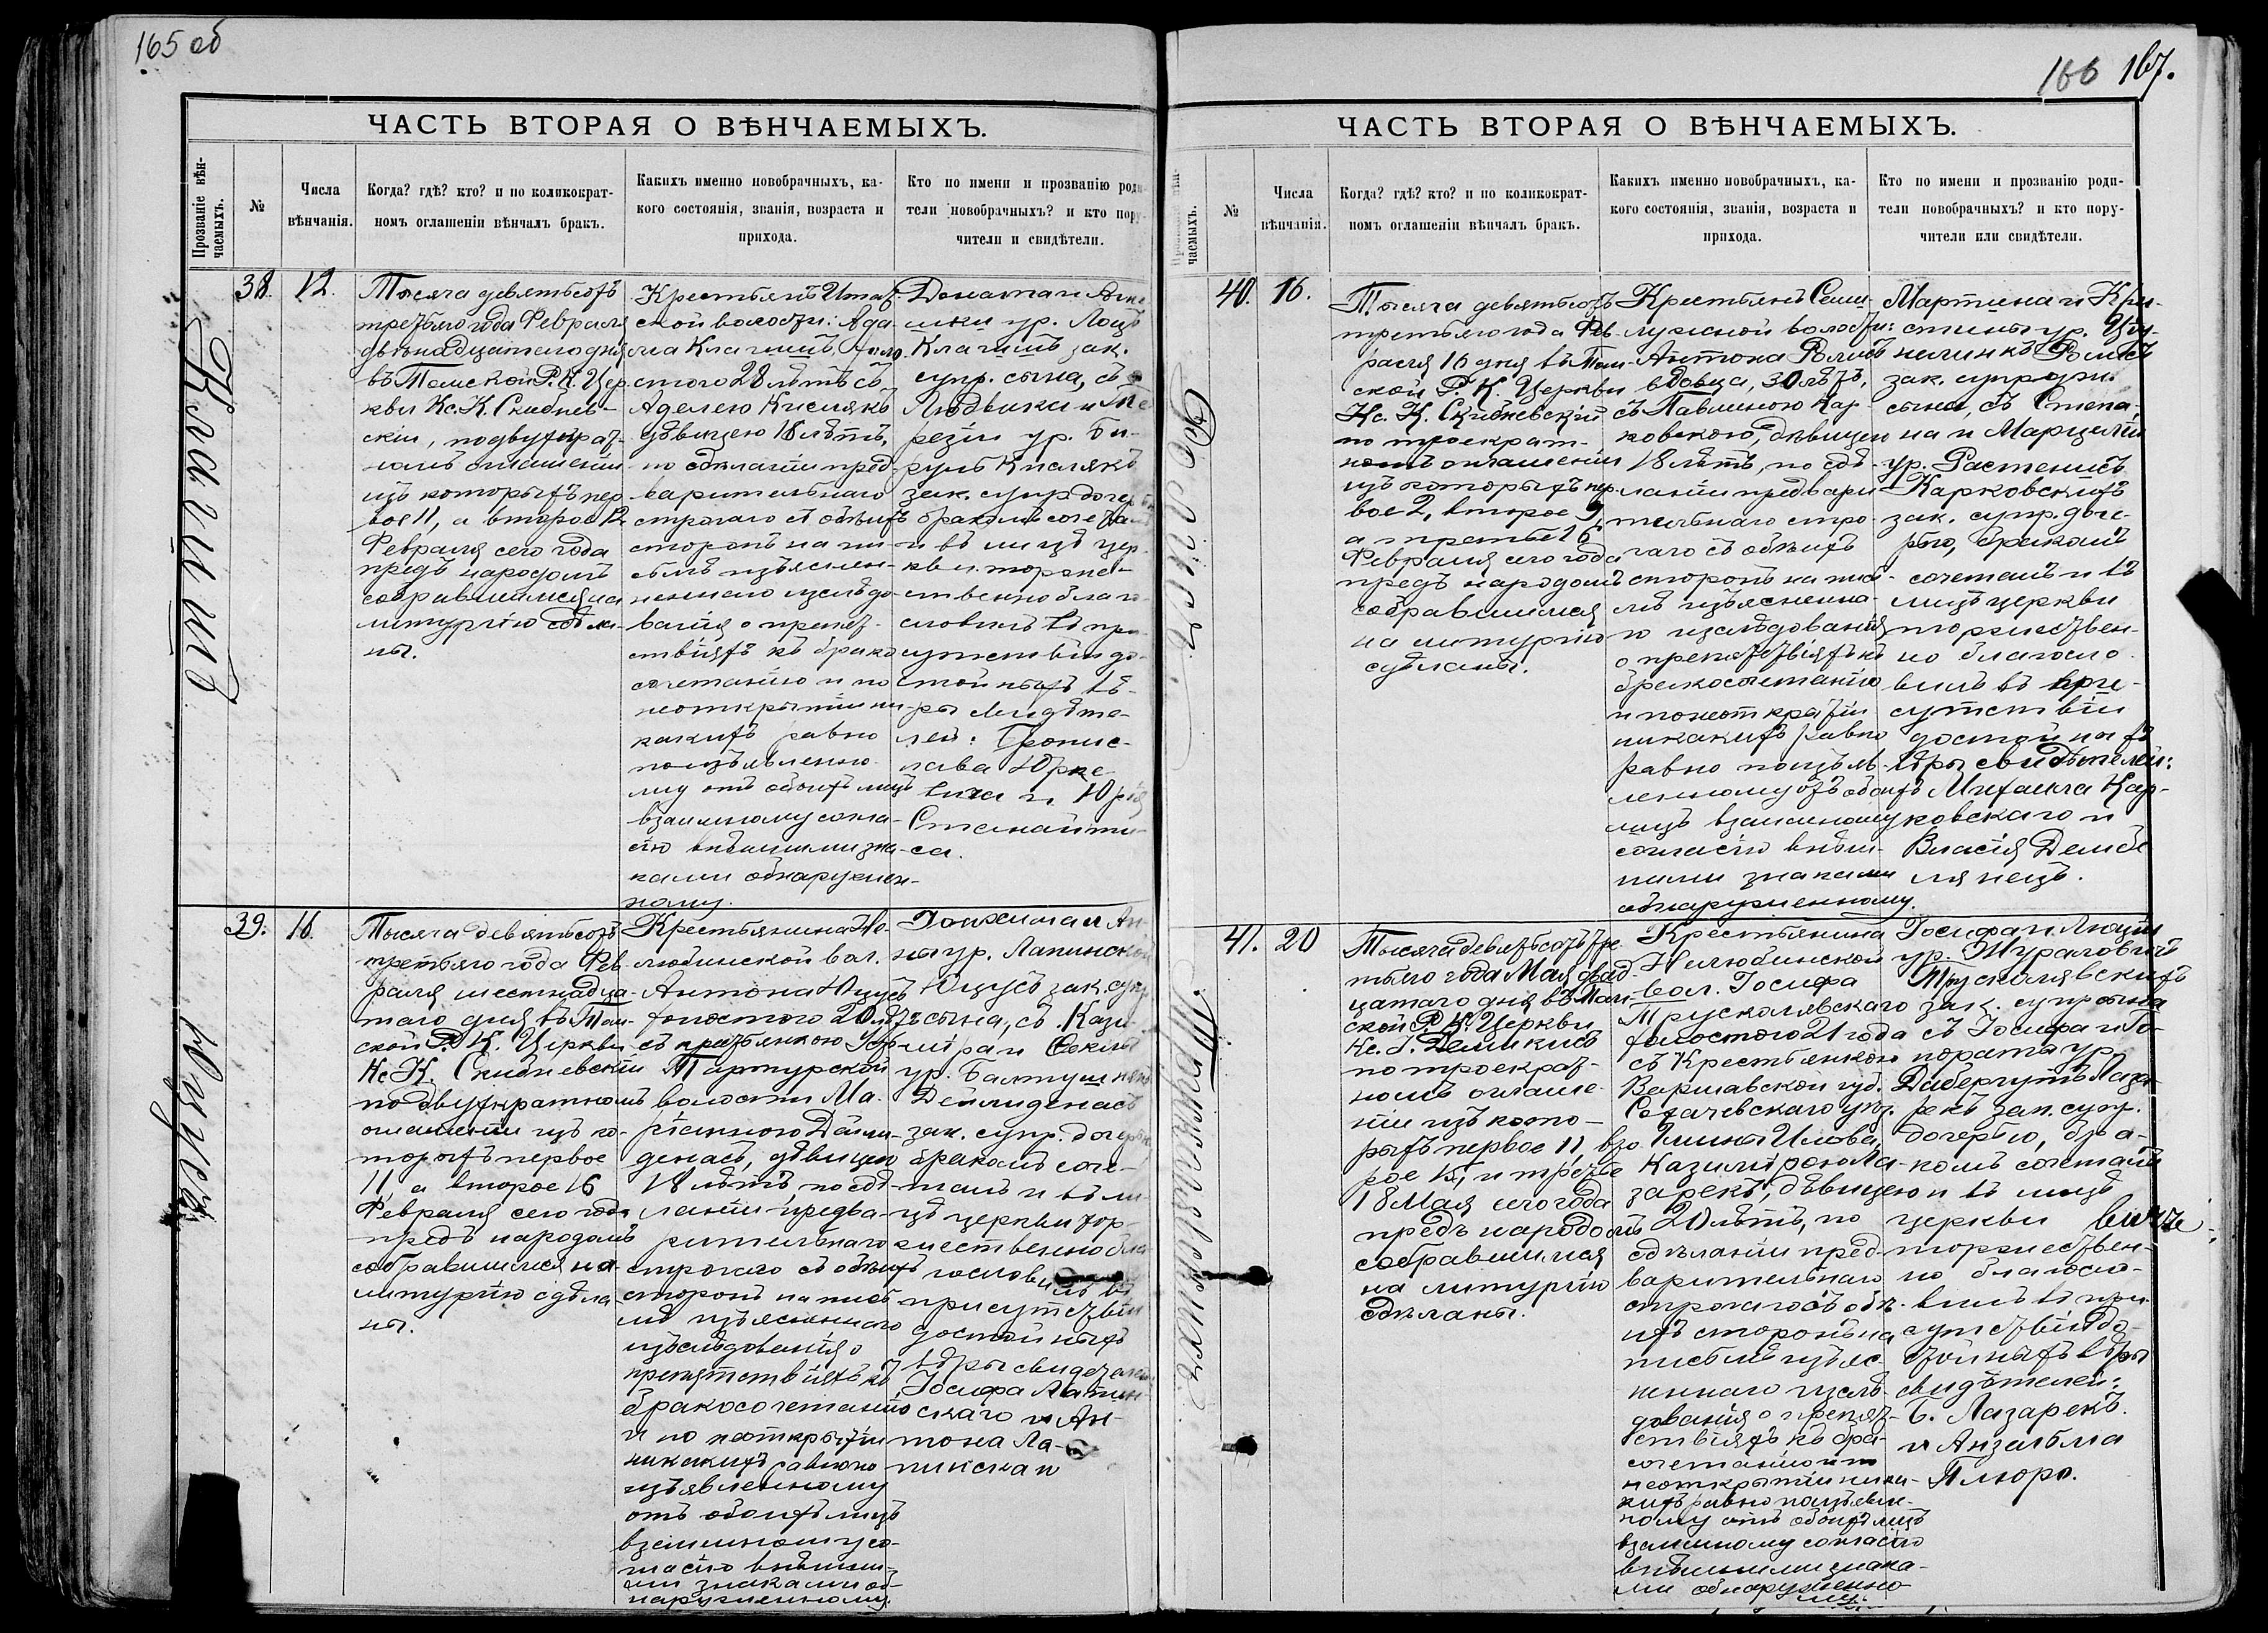 165 об
ЧАСТЬ ВТОРАЯ О ВѢНЧАЕМЫХЪ.
Прозваніе вѣн-
чаемыхъ.
№
Числа
вѣнчанія.
Когда? гдѣ? кто? и по коликократ-
номъ оглашеніи вѣнчалъ бракъ.
Какихъ именно новобрачныхъ, ка-
кого состоянія, званія, возраста и
прихода.
Кто по имени и прозванію роди-
тели новобрачныхъ? и кто пору-
чители и свидѣтели.
38.
12.
Тысяча девятьсотъ
третьяго года Февраля
двѣнадцатаго дня
въ Томской Р. К. Цер-
кви Кс. К. Скибнев-
скій, по двукрат-
номъ оглашеніи
изъ которыхъ пер
вое 11, а второе 12
Февраля сего года
предъ народомъ
собравшимся на
литургію сдѣла-
ны.
Крестьянъ
ской волости: Ада-
ма холо-
стого 28 лѣтъ съ
Аделею Кислякъ
дѣвицею 18 лѣтъ,
по сдѣланіи пред-
варительнаго
строгаго съ обѣихъ
сторонъ на пи-
сьмѣ изъяснен-
неннаго изслѣдо-
ванія о препят-
ствіяхъ къ брако
сочетанію и по
неоткрытіи ни
какихъ равно
по изъявленно-
му отъ обоихъ лицъ
взаимному согла-
сію внѣшними зна-
ками обнаружен-
ному.
Доната и
ур.
зак.
супр. сына, съ
Людвика и Те
резіи ур. Би-
руль Кислякъ
зак. супр. дочерью
бракомъ сочеталъ
и въ лицѣ цер-
кви торже-
ственно благо-
словилъ въ при
сутствіи до-
стойныхъ вѣ-
ры свидѣте-
лей: Бронис-
лава Юрке-
вича и Юрія
Станайти-
са.
39.
16.
Юцусъ
Тысяча девятьсотъ
третьяго года Фев
раля шестнадца-
таго дня въ Том-
ской Р. К. Церкви
Кс. К. Скибневскій
по двухкратномъ
оглашеніи изъ ко-
торыхъ первое
11, а второе 16
Февраля сего года
предъ народомъ
собравшимся на
литургію сдѣла-
ны.
Крестьянина Не-
любинской вол.
Антона Юцусъ
холостого 20 лѣтъ
съ крестьянкою
волости Ма-
ріанною Дайли-
денасъ, дѣвицею
18 лѣтъ по сдѣ-
ланіи предва-
рительнаго
строгаго съ обѣихъ
сторонъ на пись
мѣ изъясненнаго
изслѣдованія о
препятствіяхъ къ
бракосочетанію
и по неоткрытіи
никакихъ равно по
изъявленному
отъ обоихъ лицъ
взаимному со-
гласію внѣшни-
ми знаками об-
наруженному.
ны ур. Лапинской
Юцусъ зак. супр
сына, съ Кази-
міра и
ур.
Дейлиденасъ
зак. супр. дочерью
бракомъ соче-
талъ и въ ли-
цѣ церкви тор-
жественно бла-
гословилъ въ
присутствіи
достойныхъ
вѣры свидѣтелей
Іосифа Лапин-
скаго и Ан-
тона Ла-
пинскаго
166 167.
ЧАСТЬ ВТОРАЯ О ВѢНЧАЕМЫХЪ.
№
Числа
вѣнчанія.
Когда? гдѣ? кто? и по коликократ-
номъ оглашеніи вѣнчалъ бракъ.
Какихъ именно новобрачныхъ, ка-
кого состоянія, званія, возраста и
прихода.
Кто по имени и прозванію роди-
тели новобрачныхъ? и кто пору-
чители или свидѣтели.
40.
16.
Тысяча девятьсотъ
третьяго года Фев
раля 16 дня въ Том-
ской Р. К. Церкви
Кс. К. Скибневскій
по троекрат-
номъ оглашеніи
изъ которыхъ пер
вое 2, второе 9,
а третье 16
Февраля сего года
предъ народомъ
собравшимся
на литургію
сдѣланы.
Крестьянъ Семи-
лужной волости:
Антона
вдовца, 30 лѣтъ,
съ Павлиною Кар-
ковскою, дѣвицею
18 лѣтъ, по сдѣ-
ланіи предвари-
тельнаго стро-
гаго съ обѣихъ
сторонъ на пись-
мѣ изъяснена-
го изслѣдованія
о препятствіяхъ къ
бракосочетанію
и по неоткрытіи
никакихъ равно
равно по изъяв-
ленному отъ обоихъ
лицъ взаимному
согласію внѣш-
ними знаками
обнаруженному.
Мартина и Кри-
стины ур.
зак. супруж.
сына, съ Степа-
на и Марцеліи
ур. Растенисъ
Карковскихъ
зак. супр. доче-
рью, бракомъ
сочеталъ и въ
лицѣ церкви
торжествен-
но благосло
вилъ въ при-
сутствіи
достойныхъ
вѣры свидѣтелей:
Михаила Кар-
ковскаго и
Власія Демб
лянецъ.
41.
20
Трускалявскій
Тысяча девятьсотъ тре-
тьяго года Мая двад-
цатаго дня въ Том-
ской Р. К. Церкви
Кс. І. Демикисъ
по троекрат-
номъ оглаше-
ніи изъ кото-
рыхъ первое 11, вто
рое 15, и третье
18 Мая сего года
предъ народомъ
собравшимся
на литургію
сдѣланы.
Крестьянина
Нелюбинской
вол. Іосифа
Трускалявскаго
холостого 21 года
съ Крестьянкою
Варшавской губ.
Сохачевскаго уѣз.
Гмины Илова,
Казимірою Ла-
зарекъ, дѣвицею
20 лѣтъ, по
сдѣланіи пред-
варительнаго
строгаго съ обѣ-
ихъ сторонъ на
письмѣ изъяс-
неннаго изслѣ-
дованія о препят-
ствіяхъ къ бра-
сочетанію и по
неоткрытіи ника-
кихъ равно по изъявлен-
ному отъ обоихъ лицъ
взаимному согласію
внѣшними знака-
ми обнаруженно-
му.
Іосифа и Люціи
ур. Журавовичъ
Трускалявскихъ
зак. супр. сына
съ Іосифа и Го-
нораты ур.
Лаза-
рекъ зак. супр.
дочерью, бра-
комъ сочеталъ
и въ лицѣ
церкви
торжествен-
но благосло-
вилъ въ при-
сутствіи до-
стойныхъ вѣры
свидѣтелей:
Б. Лазарекъ
и Анзельма
Плюро.